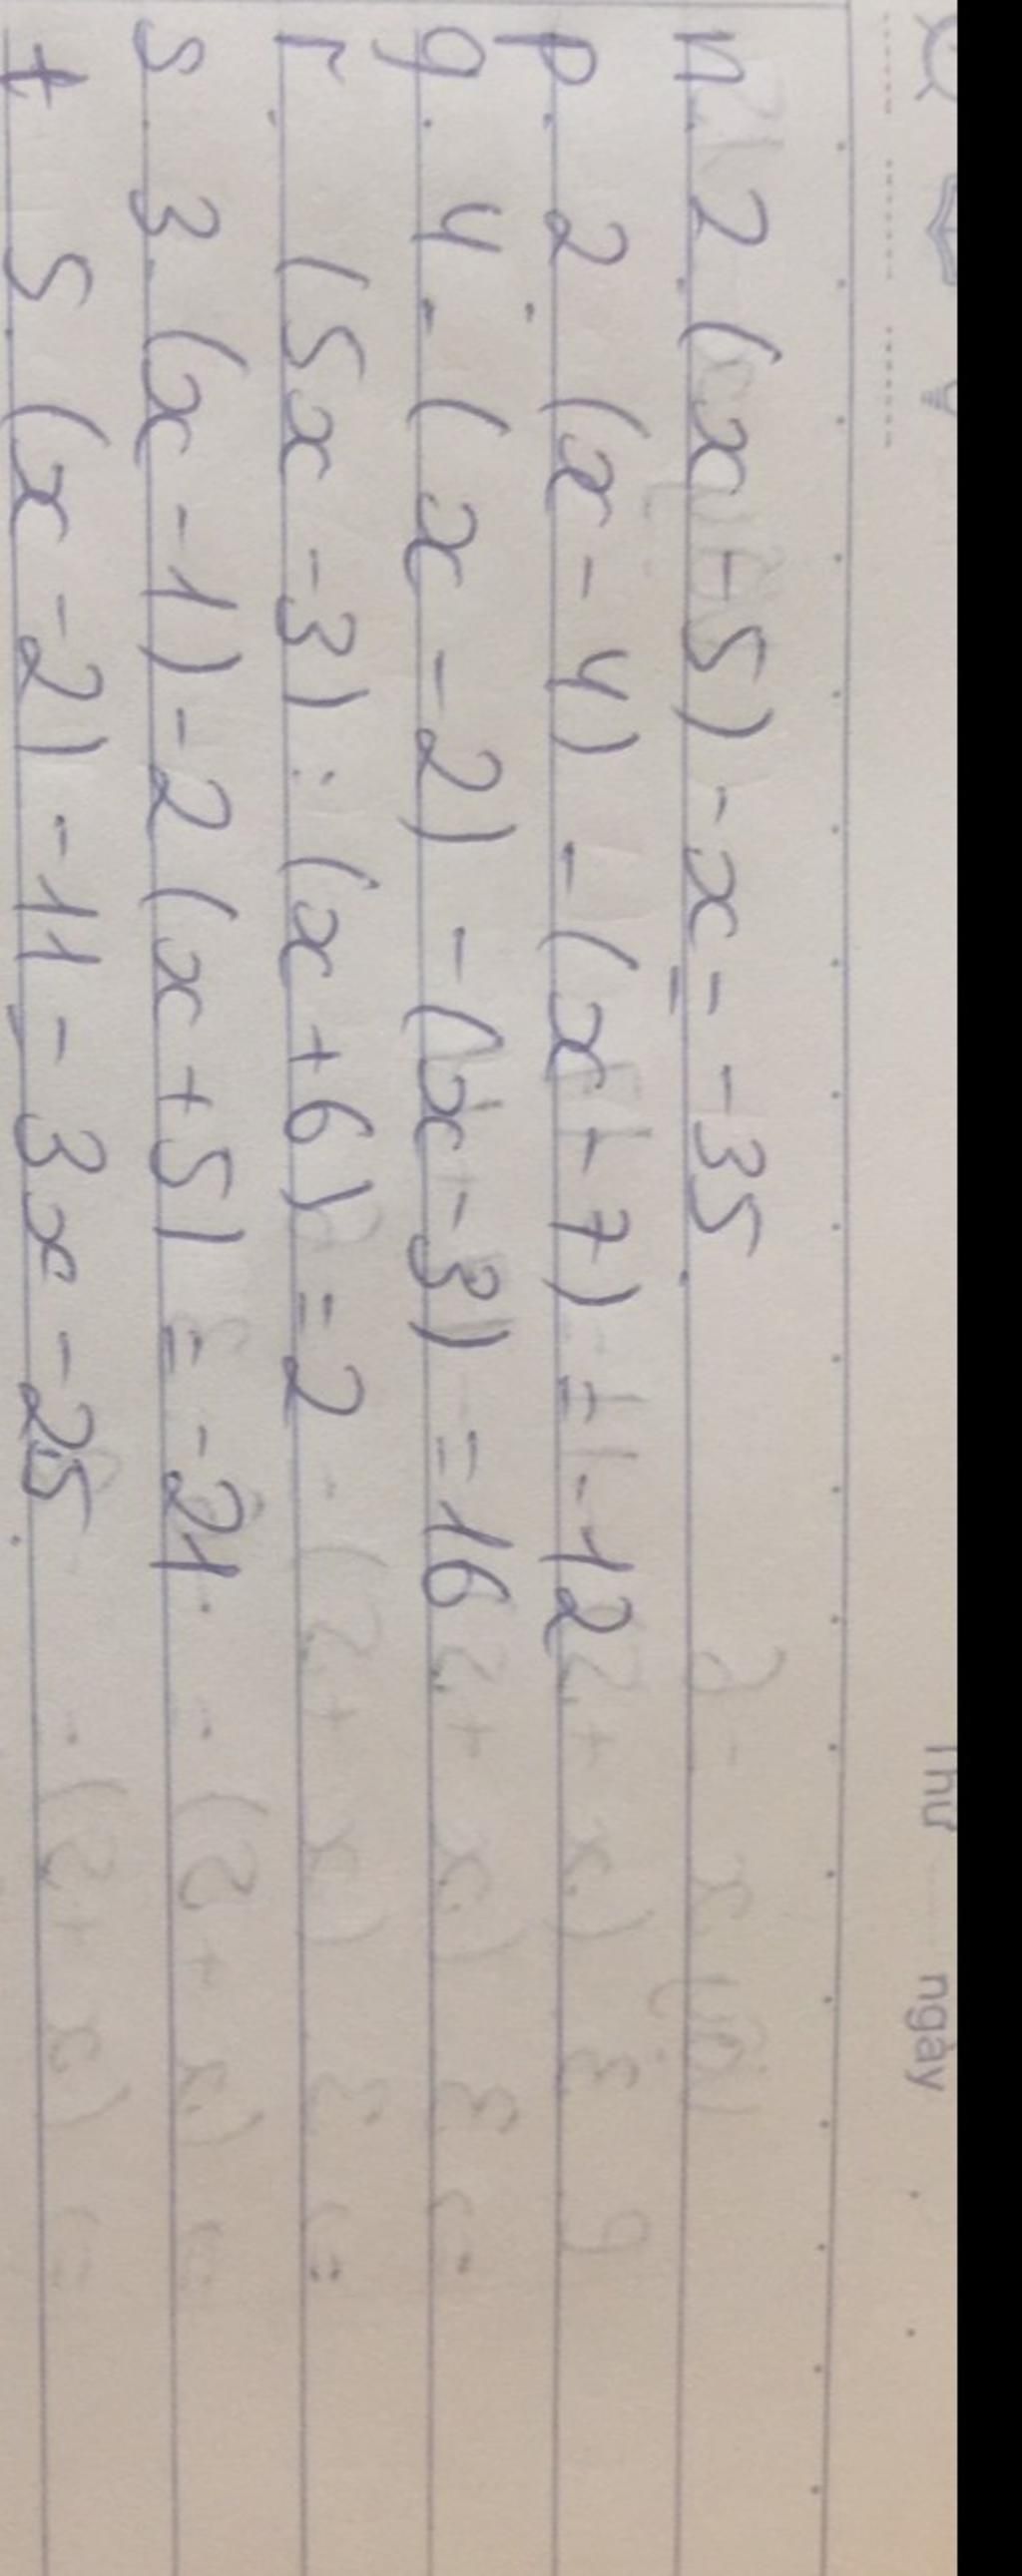 Thứ ngày
n. 2 (x - 5) - x = -35
p. 2 (x - 4) - (x - 7) = -12
q. 4. (x - 2) - (x - 3) = 16
r. (5x - 3) : (x + 6) = 2
s. 3. (x - 1) - 2 (x + 5) = -21.
t 5. (x - 2) - 11 = 3x - 25.